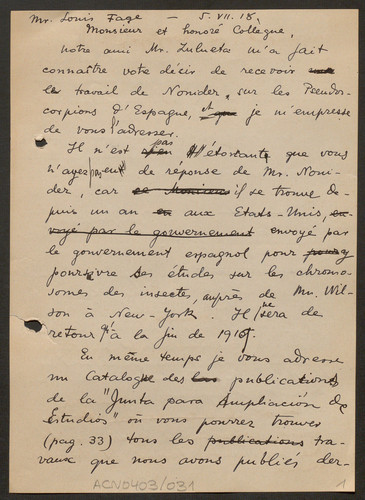 Mr. Louis Fage — 5. VII. 18.
Monsieur et honoré Collègue,
notre ami Mr. Zulueta m'a fait
connaître votre décir de recevoir
le travail de Nonidez, sur les Pseudos-
corpions d'Espagne, et je m'empresse
de vous l'adresser.
Il n'est pas étonant que vous
n'ayez pas eu de réponse de Mr. Noni-
dez, car ce Monsieur il se trouve de-
puis un an en aux Etats-Unis, en-
voyé par le gouvernement envoyé par
le gouvernement espagnol pour
poursuivre ses études sur les chromo-
somes des insectes, auprès de Mr. Wil-
son à New-York. Il ne sera de
retour qu'à la fin de 1919.
En même temps je vous adresse
un Catalogue des publications
de la "Junta para Ampliación de
Estudios" où vous pourrez trouver
(pag. 33) tous les publications tra-
vaux que nous avons publiés der-
ACN0403/031
1